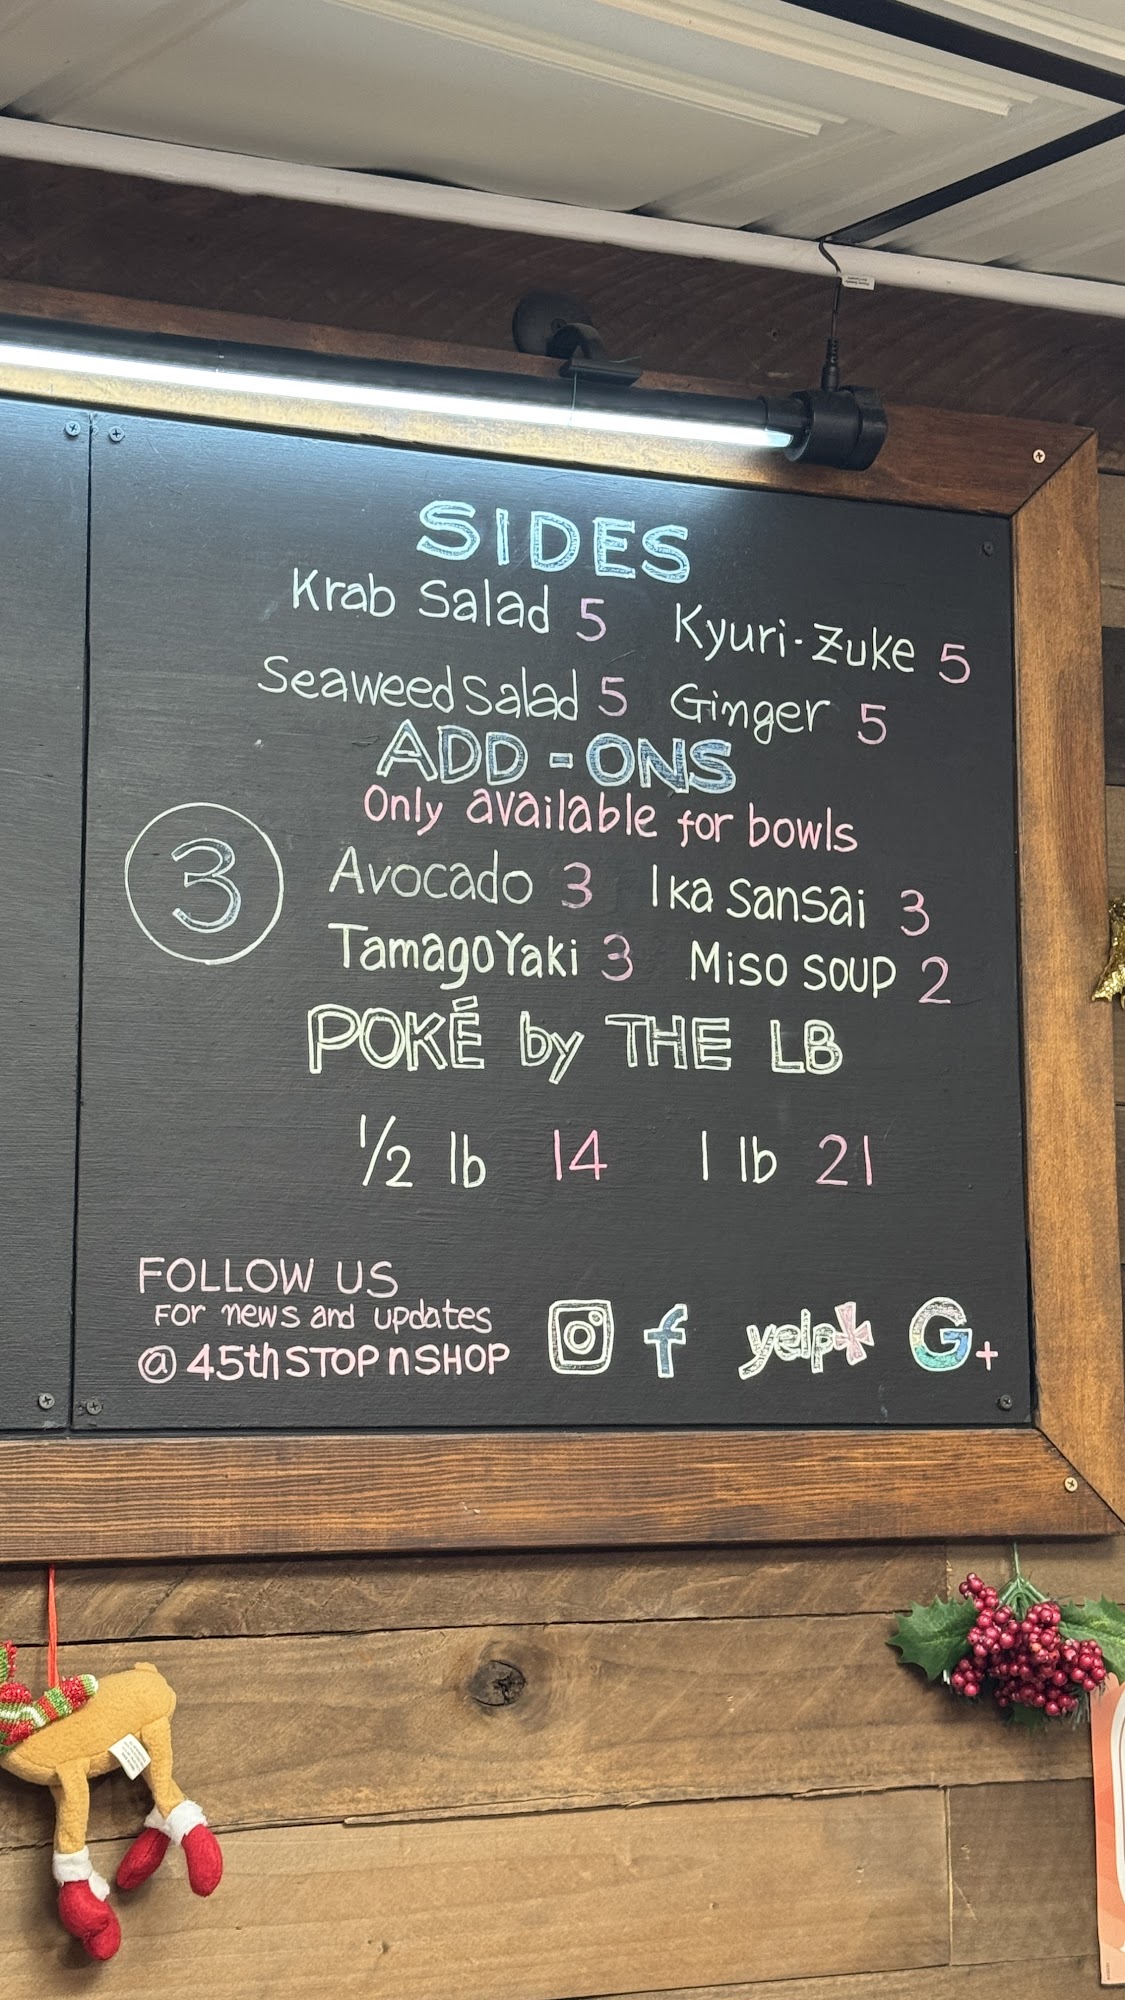 SIDES
Krab Salad 5 Kyuri-Zuke 5
Seaweed Salad 5 Ginger 5
ADD-ONS
Only available for bowls
3
Avocado 3 Ika Sansai 3
Tamago Yaki 3 Miso soup 2
POKÉ by THE LB
1/2 lb 14 1 lb 21
FOLLOW US
For news and updates
@45thSTOPnSHOP
f yelp G+